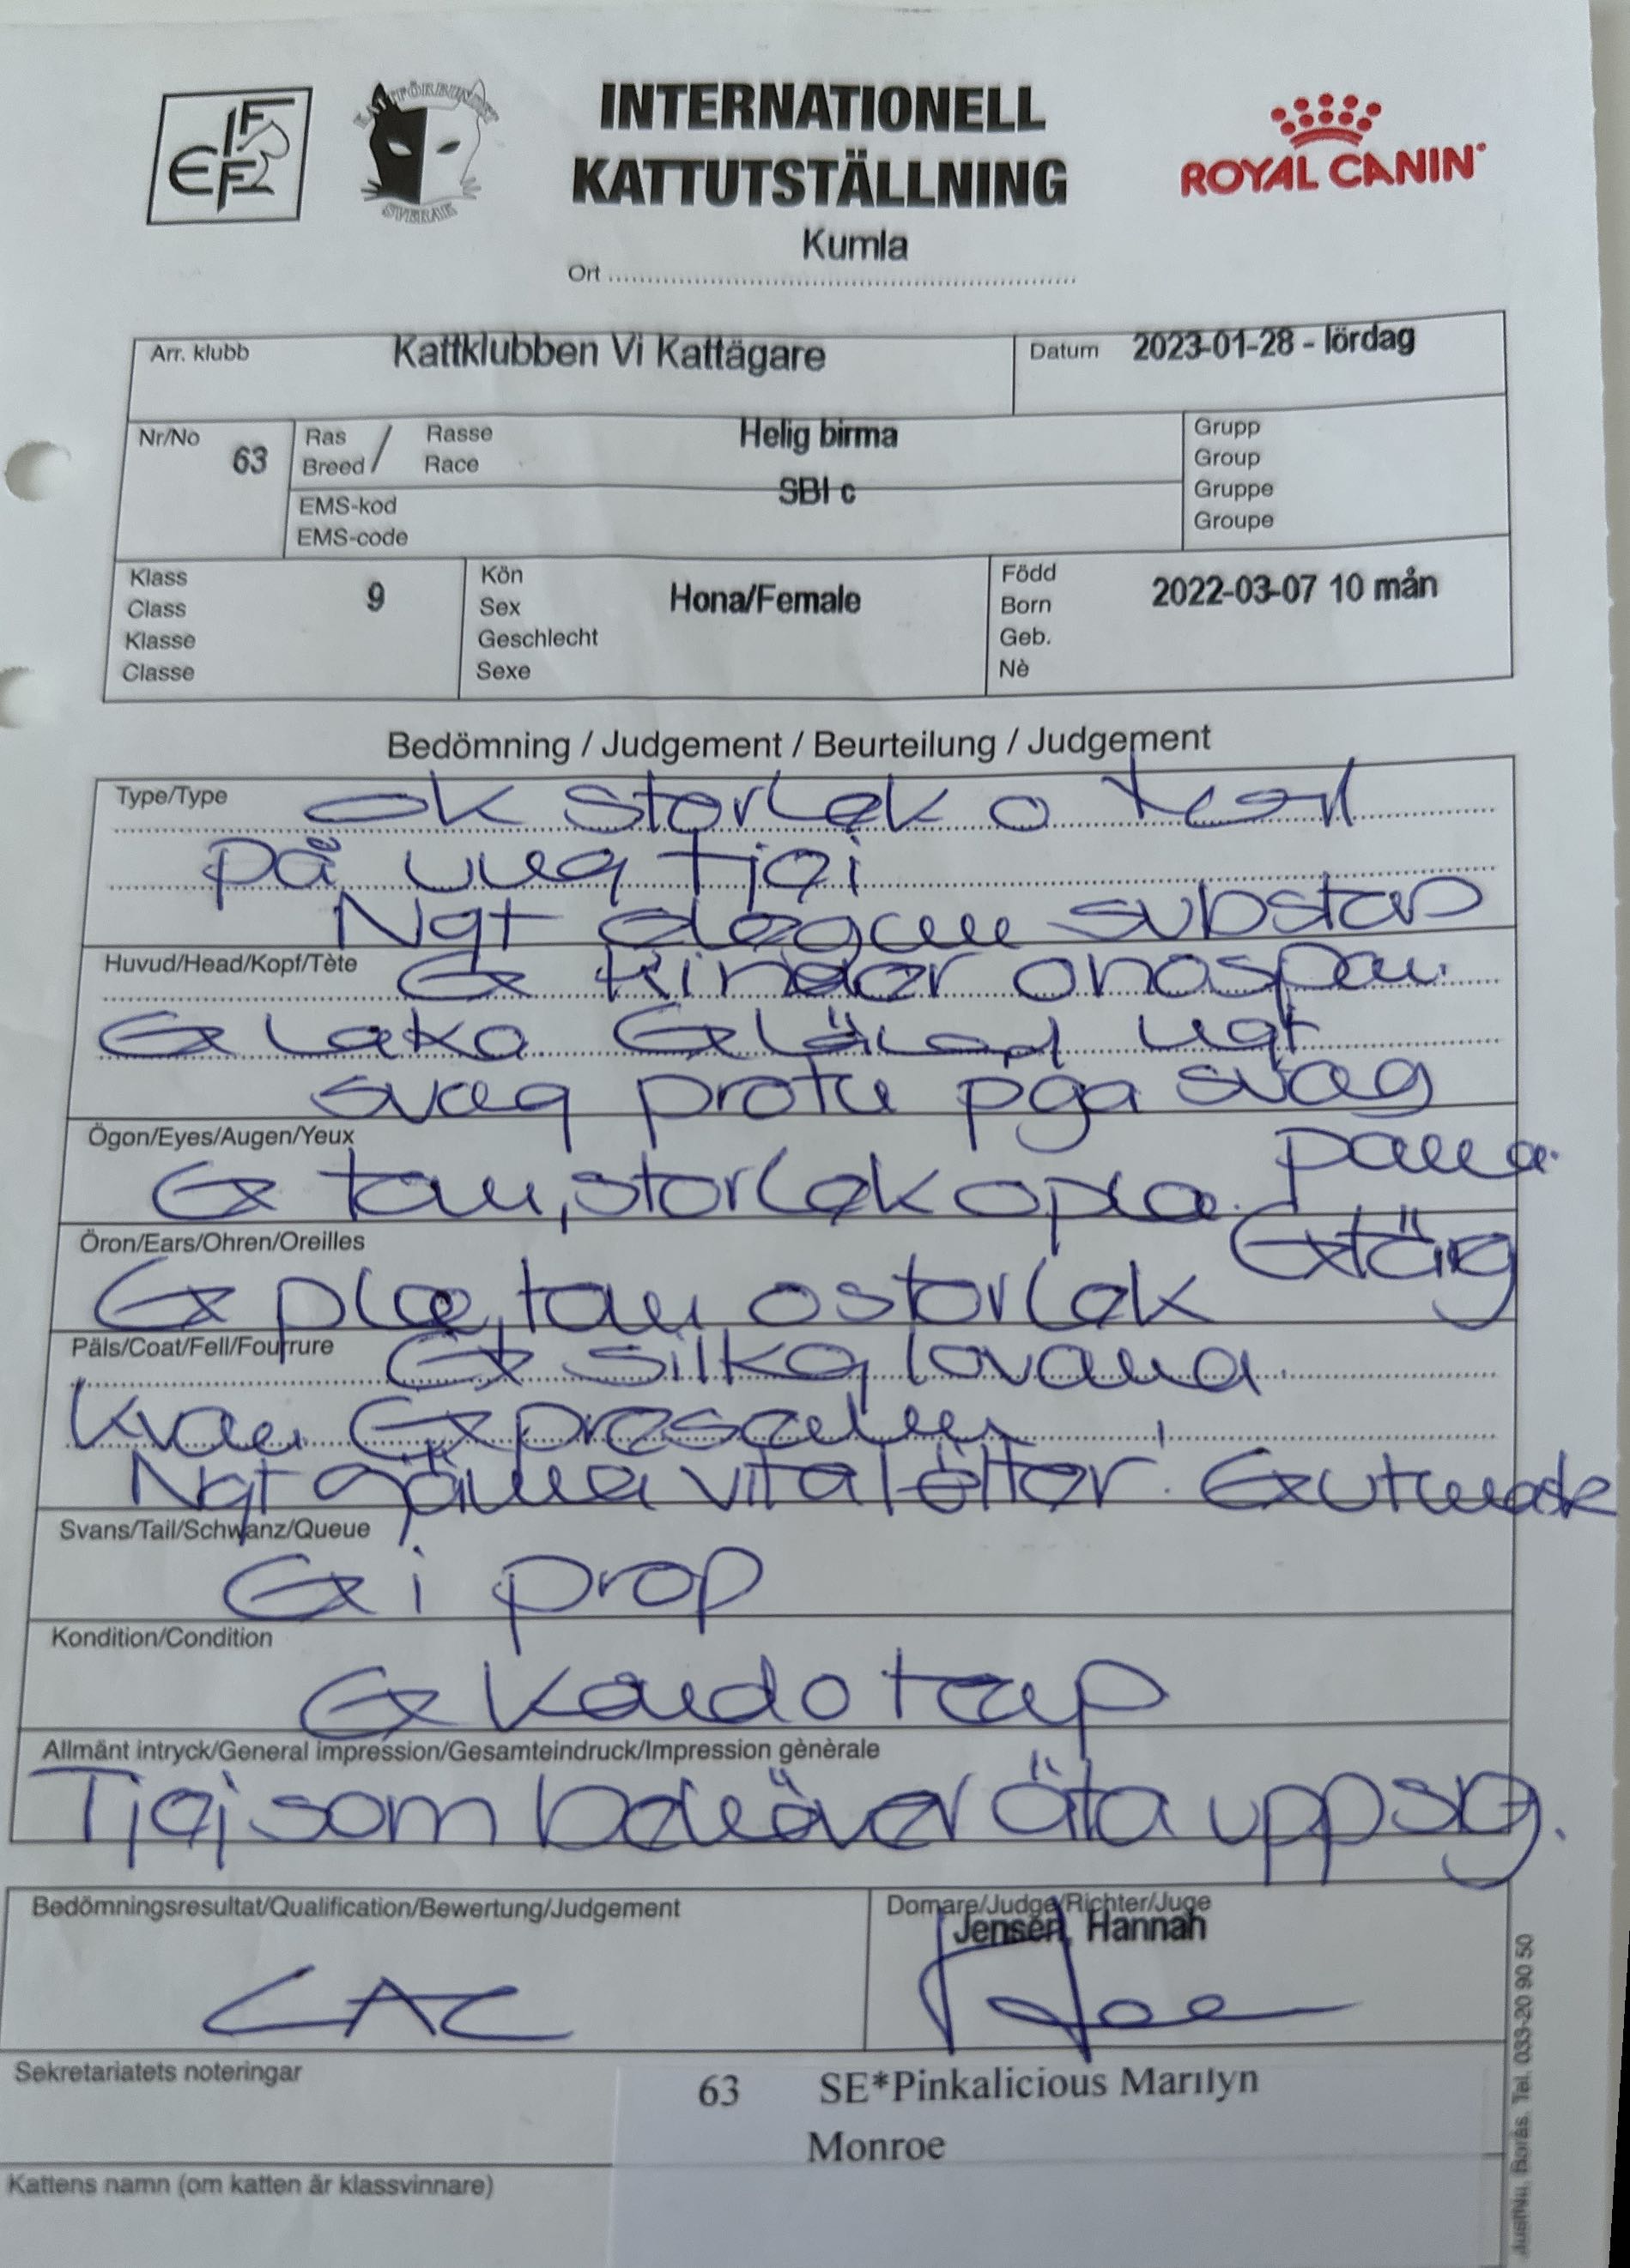 FIFE
KATTFÖRBUNDET
SVERAK
INTERNATIONELL
KATTUTSTÄLLNING
ROYAL CANIN
Kumla
Ort
Arr. klubb Kattklubben Vi Kattägare Datum 2023-01-28 - lördag
Nr/No 63 Ras / Rasse Helig birma Grupp
Breed Race Group
SBI c Gruppe
EMS-kod Groupe
EMS-code
Klass 9 Kön Hona/Female Född 2022-03-07 10 mån
Class Sex Born
Klasse Geschlecht Geb.
Classe Sexe Nè
Bedömning / Judgement / Beurteilung / Judgement
Type/Type ok storlek o
på ung tjej
Ngt elegant substans
Huvud/Head/Kopf/Tète Ex kinder o nospar.
Ex haka Ex längd ngt
svag profil pga svag
panna.
Ögon/Eyes/Augen/Yeux
Ex form, storlek o plac.
Ex färg
Öron/Ears/Ohren/Oreilles
Ex plac, form o storlek
Päls/Coat/Fell/Fourrure Ex silkig, lovande
kval Ex
Ngt gömma vita fötter. Ex
Svans/Tail/Schwanz/Queue
Ex i prop
Kondition/Condition
Ex kond o temp
Allmänt intryck/General impression/Gesamteindruck/Impression gènèrale
Tjej som behöver äta upp sig.
Bedömningsresultat/Qualification/Bewertung/Judgement Domare/Judge/Richter/Juge
Jensen, Hannah
CAC
Sekretariatets noteringar
63 SE*Pinkalicious Marilyn
Monroe
Kattens namn (om katten är klassvinnare)
Borås. Tel. 033-20 90 50